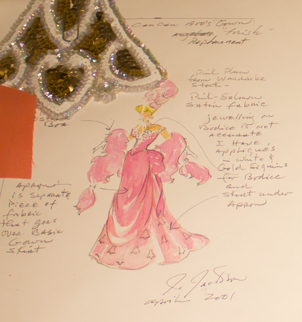 CanCan
Pink Plume
from Wardrobe
Stock -
Pink-Salmon
Satin fabric
jewelling on
Bodice is not
Accurate
I Have
Appliques
- White &
Gold Sequins
for Bodice
and
Skirt under
Apron
Bra
is Separate
piece of
fabric
that goes
over Basic
Gown
Skirt
April 2001